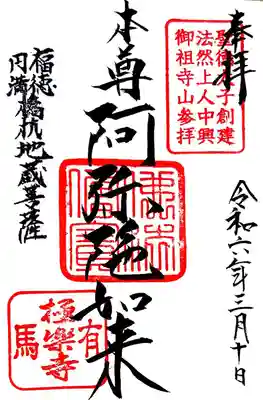 奉拝
聖徳太子創建
法然上人中興
御祖寺山参拝
本尊阿弥陀如来
福徳
円満橋杭地蔵菩薩
令和六年三月十日
有馬
極楽寺